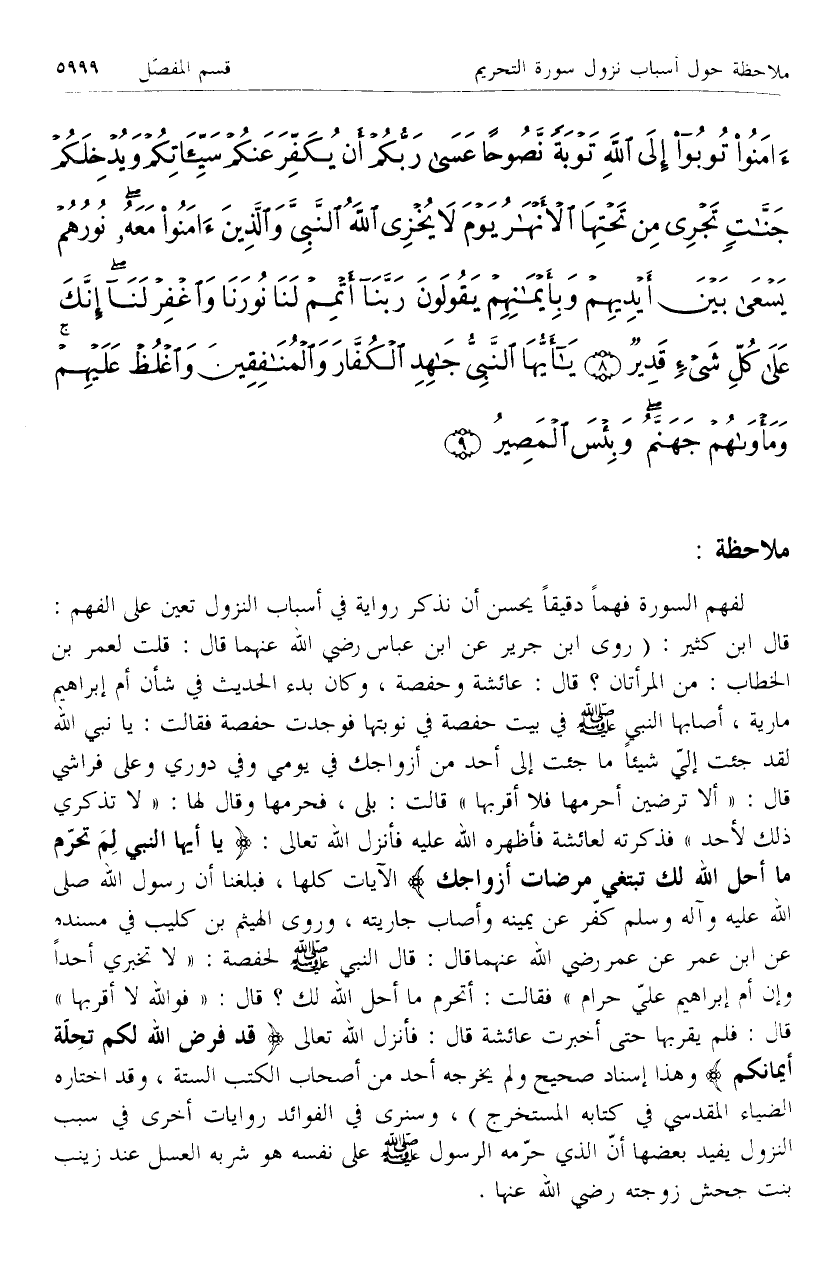 ملاحظة حول أسباب نزول سورة التحريم قسم المفصّل ٥٩٩٩
ءَامَنُوا۟ تُوبُوٓا۟ إِلَى ٱللَّهِ تَوْبَةً نَّصُوحًا عَسَىٰ رَبُّكُمْ أَن يُكَفِّرَ عَنكُمْ سَيِّـَٔاتِكُمْ وَيُدْخِلَكُمْ
جَنَّـٰتٍ تَجْرِى مِن تَحْتِهَا ٱلْأَنْهَـٰرُ يَوْمَ لَا يُخْزِى ٱللَّهُ ٱلنَّبِىَّ وَٱلَّذِينَ ءَامَنُوا۟ مَعَهُۥ ۖ نُورُهُمْ
يَسْعَىٰ بَيْنَ أَيْدِيهِمْ وَبِأَيْمَـٰنِهِمْ يَقُولُونَ رَبَّنَآ أَتْمِمْ لَنَا نُورَنَا وَٱغْفِرْ لَنَآ ۖ إِنَّكَ
عَلَىٰ كُلِّ شَىْءٍ قَدِيرٌ ﴿٨﴾ يَـٰٓأَيُّهَا ٱلنَّبِىُّ جَـٰهِدِ ٱلْكُفَّارَ وَٱلْمُنَـٰفِقِينَ وَٱغْلُظْ عَلَيْهِمْ ۚ
وَمَأْوَىٰهُمْ جَهَنَّمُ ۖ وَبِئْسَ ٱلْمَصِيرُ ﴿٩﴾
ملاحظة :
لفهم السورة فهماً دقيقاً يحسن أن نذكر رواية في أسباب النزول تعين على الفهم :
قال ابن كثير : ( روى ابن جرير عن ابن عباس رضي الله عنهما قال : قلت لعمر بن
الخطاب : من المرأتان ؟ قال : عائشة وحفصة ، وكان بدء الحديث في شأن أم إبراهيم
مارية ، أصابها النبي ﷺ في بيت حفصة في نوبتها فوجدت حفصة فقالت : يا نبي الله
لقد جئت إليّ شيئاً ما جئت إلى أحد من أزواجك في يومي وفي دوري وعلى فراشي
قال : « ألا ترضين أحرمها فلا أقربها » قالت : بلى ، فحرمها وقال لها : « لا تذكري
ذلك لأحد » فذكرته لعائشة فأظهره الله عليه فأنزل الله تعالى : ﴿ يا أيها النبي لِمَ تحرّم
ما أحل الله لك تبتغي مرضات أزواجك ﴾ الآيات كلها ، فبلغنا أن رسول الله صلى
الله عليه وآله وسلم كفّر عن يمينه وأصاب جاريته ، وروى الهيثم بن كليب في مسنده
عن ابن عمر عن عمر رضي الله عنهما قال : قال النبي ﷺ لحفصة : « لا تخبري أحداً
وإن أم إبراهيم عليّ حرام » فقالت : أتحرم ما أحل الله لك ؟ قال : « فوالله لا أقربها »
قال : فلم يقربها حتى أخبرت عائشة قال : فأنزل الله تعالى ﴿ قد فرض الله لكم تحِلّة
أيمانكم ﴾ وهذا إسناد صحيح ولم يخرجه أحد من أصحاب الكتب الستة ، وقد اختاره
الضياء المقدسي في كتابه المستخرج ) ، وسنرى في الفوائد روايات أخرى في سبب
النزول يفيد بعضها أنّ الذي حرّمه الرسول ﷺ على نفسه هو شربه العسل عند زينب
بنت جحش زوجته رضي الله عنها .